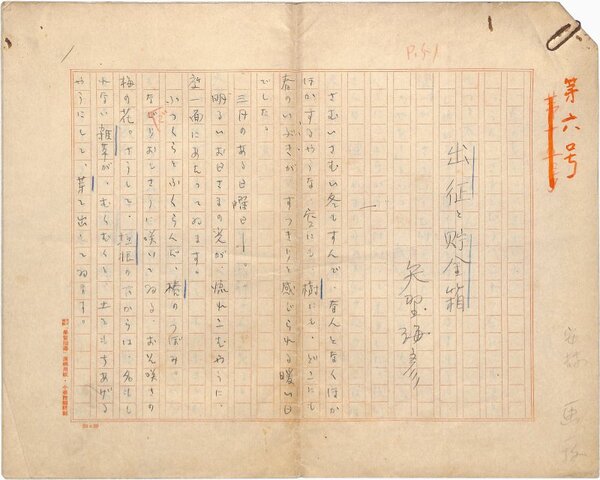 第六号
P.51
出征と貯金箱
一
さむいさむい冬もすんで、なんとなくほか
ほかするやうな、空にも、樹にも、どこにも
春のいぶきが、すつきりと感じられる暖い日
でした。
三月のある日曜日——。
明るいお日さまの光が、流れこむやうに、
一面にあたつてゐます。
ふつくらとふくらんだ、椿のつぼみ。
咲いてゐる、お先咲きの
梅の花。さうして、垣根の下からは、名もし
れない雑草が、むくむくと、土をもちあげる
やうにして、芽を出してゐます。